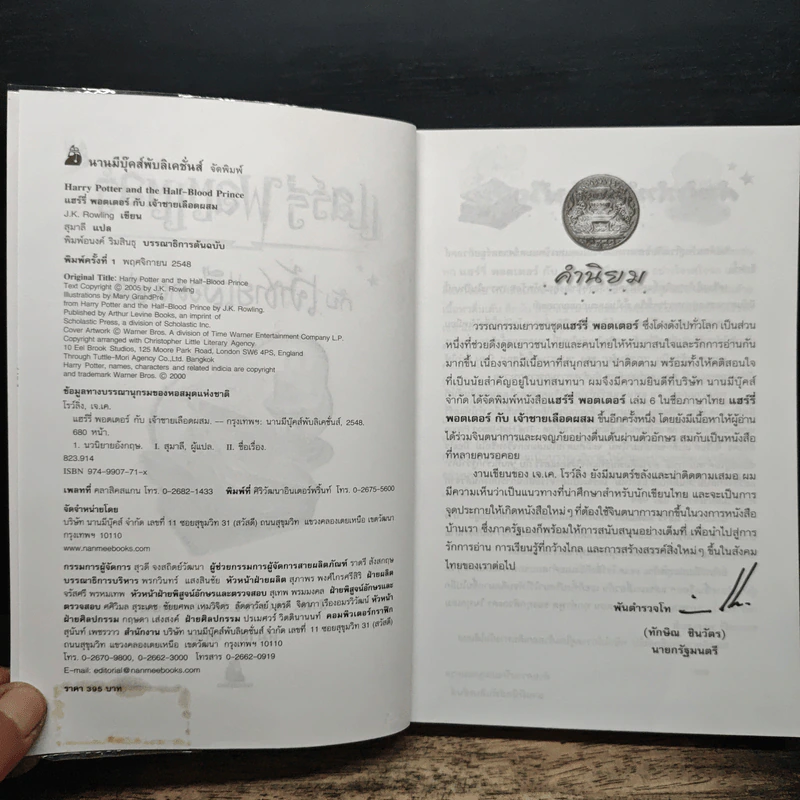 นานมีบุ๊คส์พับลิเคชั่นส์ จัดพิมพ์
Harry Potter and the Half-Blood Prince
แฮร์รี่ พอตเตอร์ กับ เจ้าชายเลือดผสม
J.K. Rowling เขียน
สุมาลี แปล
พิมพ์อนงค์ ริมสินธุ บรรณาธิการต้นฉบับ
พิมพ์ครั้งที่ 1 พฤศจิกายน 2548
Original Title: Harry Potter and the Half-Blood Prince
Text Copyright © 2005 by J.K. Rowling
Illustrations by Mary GrandPré
from Harry Potter and the Half-Blood Prince by J.K. Rowling.
Published by Arthur Levine Books, an imprint of
Scholastic Press, a division of Scholastic Inc.
Cover Artwork © Warner Bros. A division of Time Warner Entertainment Company L.P.
Copyright arranged with Christopher Little Literary Agency.
10 Eel Brook Studios, 125 Moore Park Road, London SW6 4PS, England
Through Tuttle-Mori Agency Co.,Ltd. Bangkok
Harry Potter, names, characters and related indicia are copyright
and trademark Warner Bros. © 2000
ข้อมูลทางบรรณานุกรมของหอสมุดแห่งชาติ
โรว์ลิ่ง, เจ.เค.
แฮร์รี่ พอตเตอร์ กับ เจ้าชายเลือดผสม. — กรุงเทพฯ: นานมีบุ๊คส์พับลิเคชั่นส์, 2548.
680 หน้า.
1. นวนิยายอังกฤษ. I. สุมาลี, ผู้แปล. II. ชื่อเรื่อง.
823.914
ISBN 974-9907-71-x
เพลทที่ คลาสิคสแกน โทร. 0-2682-1433 พิมพ์ที่ ศิริวัฒนาอินเตอร์พริ้นท์ โทร. 0-2675-5600
จัดจำหน่ายโดย
บริษัท นานมีบุ๊คส์ จำกัด เลขที่ 11 ซอยสุขุมวิท 31 (สวัสดี) ถนนสุขุมวิท แขวงคลองเตยเหนือ เขตวัฒนา
กรุงเทพฯ 10110
www.nanmeebooks.com
กรรมการผู้จัดการ สุวดี จงสถิตย์วัฒนา ผู้ช่วยกรรมการผู้จัดการสายผลิตภัณฑ์ ราตรี สังสกฤษ
บรรณาธิการบริหาร พรกวินทร์ แสงสินชัย หัวหน้าฝ่ายผลิต สุภาพร พงศ์ไกรศรีสิริ ฝ่ายผลิต
จรัสศรี พรหมเทพ หัวหน้าฝ่ายพิสูจน์อักษรและตรวจสอบ สุเทพ พรมมงคล ฝ่ายพิสูจน์อักษรและ
ตรวจสอบ ศศิวิมล สุระเดช ชัยยศพล เหมวิจิตร ลัดดาวัลย์ บุตรดี จิดาภา เรืองอมรวิวัฒน์ หัวหน้า
ฝ่ายศิลปกรรม กฤษดา เส่งสงค์ ฝ่ายศิลปกรรม ปรเมศวร์ วิตตินานนท์ คอมพิวเตอร์กราฟิก
สุนันท์ เพชรวาว สำนักงาน บริษัท นานมีบุ๊คส์พับลิเคชั่นส์ จำกัด เลขที่ 11 ซอยสุขุมวิท 31 (สวัสดี)
ถนนสุขุมวิท แขวงคลองเตยเหนือ เขตวัฒนา กรุงเทพฯ 10110
โทร. 0-2670-9800, 0-2662-3000 โทรสาร 0-2662-0919
E-mail: editorial@nanmeebooks.com
ราคา 395 บาท
คำนิยม
วรรณกรรมเยาวชนชุดแฮร์รี่ พอตเตอร์ ซึ่งโด่งดังไปทั่วโลก เป็นส่วน
หนึ่งที่ช่วยดึงดูดเยาวชนไทยและคนไทยให้หันมาสนใจและรักการอ่านกัน
มากขึ้น เนื่องจากมีเนื้อหาที่สนุกสนาน น่าติดตาม พร้อมทั้งให้คติสอนใจ
ที่เป็นนัยสำคัญอยู่ในบทสนทนา ผมจึงมีความยินดีที่บริษัท นานมีบุ๊คส์
จำกัด ได้จัดพิมพ์หนังสือแฮร์รี่ พอตเตอร์ เล่ม 6 ในชื่อภาษาไทย แฮร์รี่
พอตเตอร์ กับ เจ้าชายเลือดผสม ขึ้นอีกครั้งหนึ่ง โดยยังมีเนื้อหาให้ผู้อ่าน
ได้ร่วมจินตนาการและผจญภัยอย่างตื่นเต้นผ่านตัวอักษร สมกับเป็นหนังสือ
ที่หลายคนรอคอย
งานเขียนของ เจ.เค. โรว์ลิ่ง ยังมีมนตร์ขลังและน่าติดตามเสมอ ผม
มีความเห็นว่าเป็นแนวทางที่น่าศึกษาสำหรับนักเขียนไทย และจะเป็นการ
จุดประกายให้เกิดหนังสือใหม่ๆ ที่ต้องใช้จินตนาการมากขึ้นในวงการหนังสือ
บ้านเรา ซึ่งภาครัฐเองก็พร้อมให้การสนับสนุนอย่างเต็มที่ เพื่อนำไปสู่การ
รักการอ่าน การเรียนรู้ที่กว้างไกล และการสร้างสรรค์สิ่งใหม่ๆ ขึ้นในสังคม
ไทยของเราต่อไป
พันตำรวจโท
(ทักษิณ ชินวัตร)
นายกรัฐมนตรี